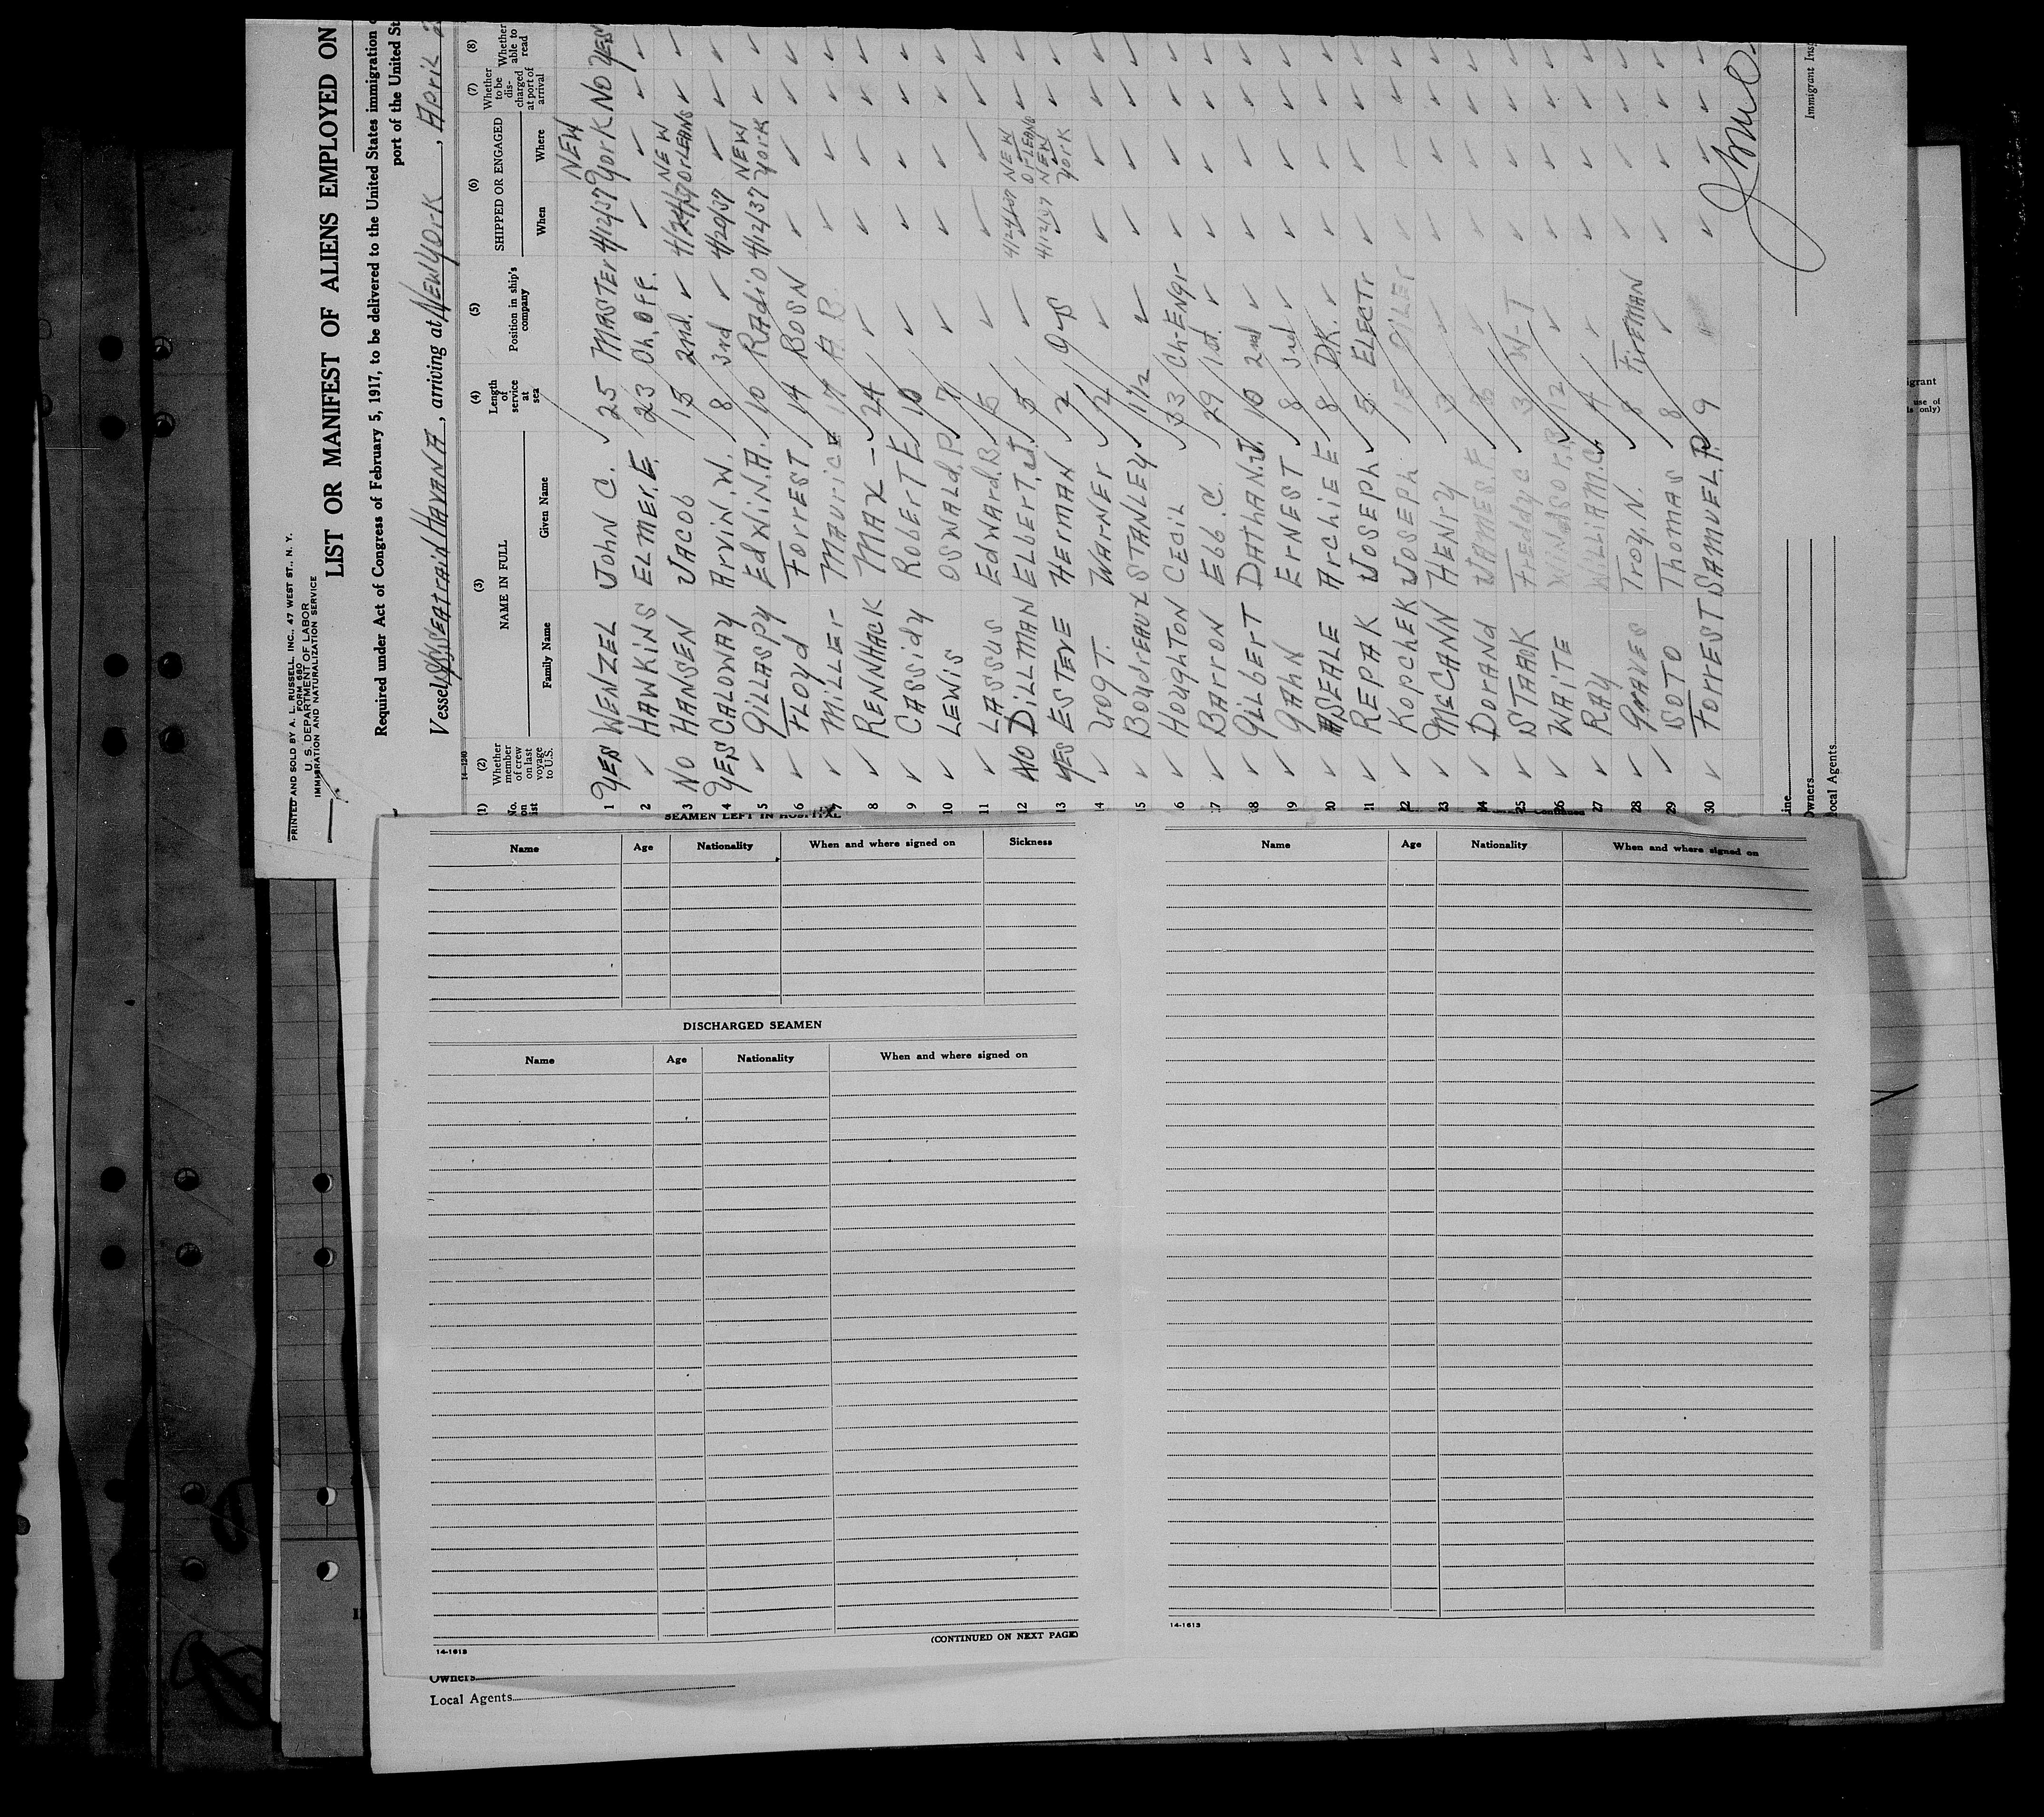 PRINTED AND SOLD BY A. L. RUSSELL, INC., 47 WEST ST., N. Y.
FORM 680
U. S. DEPARTMENT OF LABOR
IMMIGRATION AND NATURALIZATION SERVICE
LIST OR MANIFEST OF ALIENS EMPLOYED ON
Required under Act of Congress of February 5, 1917, to be delivered to the United States immigration
port of the United St
Vessel SS Seatrain Havana, arriving at New York, April
14-1240
(1) (2) (3) (4) (5) (6) (7) (8)
No. on list Whether member of crew on last voyage to U.S. NAME IN FULL Family Name Given Name Length of service at sea Position in ship's company SHIPPED OR ENGAGED When Where Whether to be discharged at port of arrival Whether able to read
1 YES WENZEL John C. 25 MASTER 4/12/37 NEW YORK NO YES
2 ✓ HAWKINS ELMER.E. 23 Ch.OFF. ✓ ✓ ✓ ✓
3 NO HANSEN JACOB 15 2nd. ✓ 4/24/37 NEW ORLEANS ✓ ✓
4 YES CALOWAY ArviN.W. 8 3rd ✓ 4/20/37 ✓ ✓ ✓
5 ✓ GILLASPY EdwiN.A. 10 RAdiO 4/12/37 NEW YORK ✓ ✓
6 ✓ FLOYd FORREST. 14 BOSN ✓ ✓ ✓ ✓
7 ✓ MiLLEr MAURICE 17 A.B. ✓ ✓ ✓ ✓
8 ✓ RENNHACK MAX - 24 ✓ ✓ ✓ ✓ ✓
9 ✓ CASSidy RobErT E. 10 ✓ ✓ ✓ ✓ ✓
10 ✓ LEWiS OSWALd.P. 7 ✓ ✓ ✓ ✓ ✓
11 ✓ LASSUS EdwArd.R. 5 ✓ ✓ ✓ ✓ ✓
12 NO DiLLMAN ELbErT.J. 5 ✓ 4/24/37 NEW ORLEANS ✓ ✓
13 YES ESTEVE HErMAN 2 O-S 4/12/37 NEW YORK ✓ ✓
14 ✓ VOGT. WArNEr 2 ✓ ✓ ✓ ✓ ✓
15 ✓ BOUdrEAUX STANLEY 1 1/2 ✓ ✓ ✓ ✓ ✓
16 ✓ HOUGHTON CECiL 33 Ch-ENgr ✓ ✓ ✓ ✓
17 ✓ BArrON Ebb.C. 29 1st. ✓ ✓ ✓ ✓ ✓
18 ✓ GiLbErT DATHAN.J. 10 2nd ✓ ✓ ✓ ✓ ✓
19 ✓ GAhN ErNEST 8 3rd ✓ ✓ ✓ ✓ ✓
20 ✓ SEALE ArchiE E 8 D.K. ✓ ✓ ✓ ✓ ✓
21 ✓ REPAK JOSEPh 5 ELECTr ✓ ✓ ✓ ✓
22 ✓ KOPChEK JOSEPh 15 OiLEr ✓ ✓ ✓ ✓
23 ✓ McCANN HENrY 3 ✓ ✓ ✓ ✓ ✓
24 ✓ DOrANd JAMES.F. ✓ ✓ ✓ ✓ ✓
25 ✓ STARK FrEddy C 3 W-T ✓ ✓ ✓ ✓
26 ✓ WAiTE WiNdSOr.B. 12 ✓ ✓ ✓ ✓ ✓
27 ✓ RAY WiLLiAM.C. 4 ✓ ✓ ✓ ✓ ✓
28 ✓ Troy N. 8 FirEMAN ✓ ✓ ✓ ✓
29 ✓ SOTO ThOMAS 8 ✓ ✓ ✓ ✓ ✓
30 ✓ FOrrEST SAMUEL.P. 9 ✓ ✓ ✓ ✓
Immigrant Insp
Line
Owners
Local Agents
SEAMEN LEFT IN HOSPITAL
Name Age Nationality When and where signed on Sickness
DISCHARGED SEAMEN
Name Age Nationality When and where signed on
(CONTINUED ON NEXT PAGE)
14-1613
Continued
Name Age Nationality When and where signed on
14-1613
Owners
Local Agents
igrant
use of
ls only)